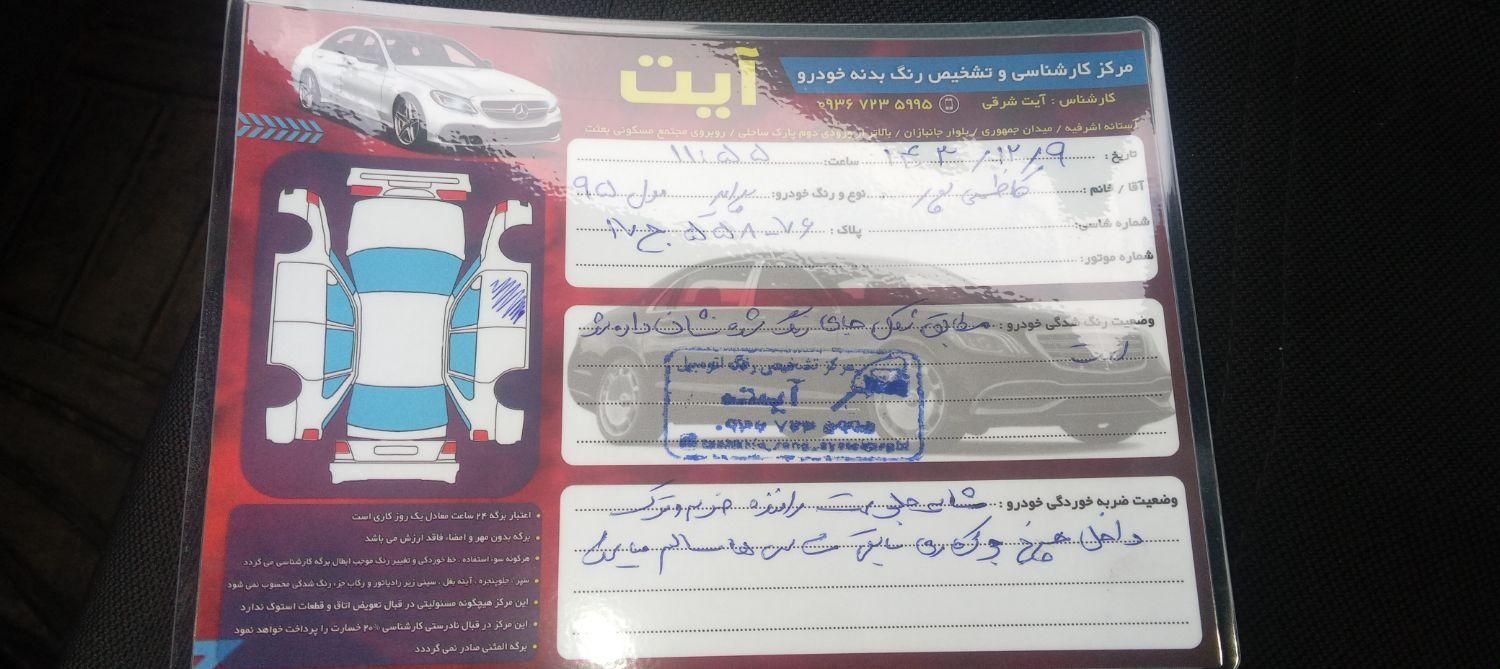 آیت
مرکز کارشناسی و تشخیص رنگ بدنه خودرو
کارشناس : آیت شرقی ۰۹۳۶ ۷۲۳ ۵۹۹۵
آستانه اشرفیه / میدان جمهوری / بلوار جانبازان / بالاتر از ورودی دوم پارک ساحلی / روبروی مجتمع مسکونی بعثت
تاریخ : ۱۴۰۳/۱۲/۹ ساعت: ۱۱:۵۵
آقا / خانم : کاظمی پور نوع و رنگ خودرو: پراید مدل ۹۵
شماره شاسی: پلاک : ۷۶-۵۵۸ ج ۱۷
شماره موتور:
وضعیت رنگ شدگی خودرو : مطابق شکل جای رنگ شده نشان داده شده
است
مرکز تشخیص رنگ اتومبیل
آیت
۰۹۳۶ ۷۲۳ ۵۹۹۵
وضعیت ضربه خوردگی خودرو : شاسی جلو سمت راننده ضربه و ترک
داخل چرخ بقیه شاسی ها سالم میباشد
اعتبار برگه ۲۴ ساعت معادل یک روز کاری است
برگه بدون مهر و امضاء فاقد ارزش می باشد
هرگونه سوء استفاده ، خط خوردگی و تغییر رنگ موجب ابطال برگه کارشناسی می گردد
سپر ، جلوپنجره ، آینه بغل ، سینی زیر رادیاتور و رکاب جزء رنگ شدگی محسوب نمی شود
این مرکز هیچگونه مسئولیتی در قبال تعویض اتاق و قطعات استوک ندارد
این مرکز در قبال نادرستی کارشناسی ۲۰% خسارت را پرداخت خواهد نمود
برگه المثنی صادر نمی گرددد